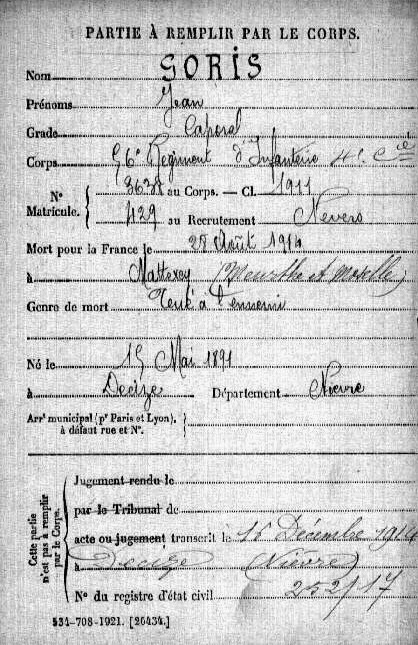 PARTIE À REMPLIR PAR LE CORPS.
Nom GORIS
Prénoms Jean
Grade Caporal
Corps 56e Régiment d'Infanterie 4e Cie
N° Matricule. { 3638 au Corps. — Cl. 1911
429 au Recrutement Nevers
Mort pour la France le 28 Août 1914
à Mattexey (Meurthe et Moselle)
Genre de mort Tué à l'ennemi
Né le 15 Mai 1891
à Decize Département Nièvre
Arrt municipal (pr Paris et Lyon), }
à défaut rue et N°.
Cette partie n'est pas à remplir par le Corps.
Jugement rendu le
par le Tribunal de
acte ou jugement transcrit le 16 Décembre 1914
à Decize (Nièvre)
N° du registre d'état civil 252/17
534-708-1921. [26434.]